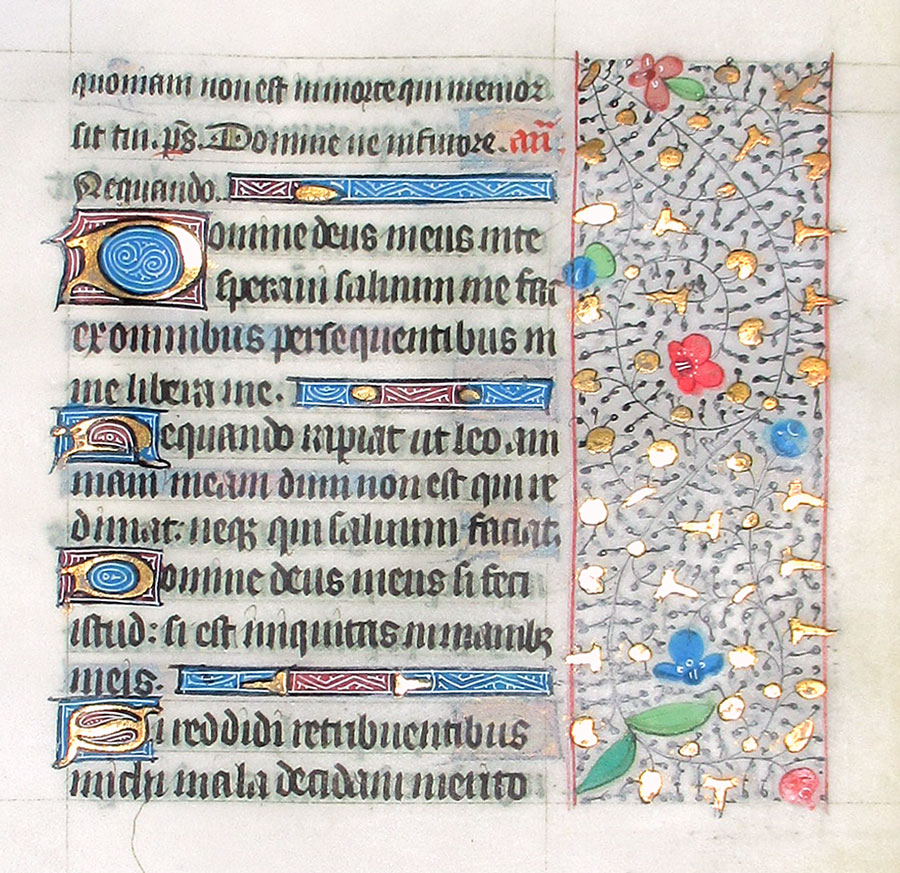 quoniam non est in morte qui memor
sit tui. p̄s. Domine ne in furore. añ.
Nequando.
Domine deus meus in te
speraui saluum me fac
ex omnibus persequentibus m
me libera me.
Nequando rapiat ut leo. ani
mam meam dum non est qui re
dimat: neqꝫ qui saluum faciat.
Domine deus meus si feci
istud: si est iniquitas in manibꝫ
meis.
Si reddidi retribuentibus
michi mala decidam merito